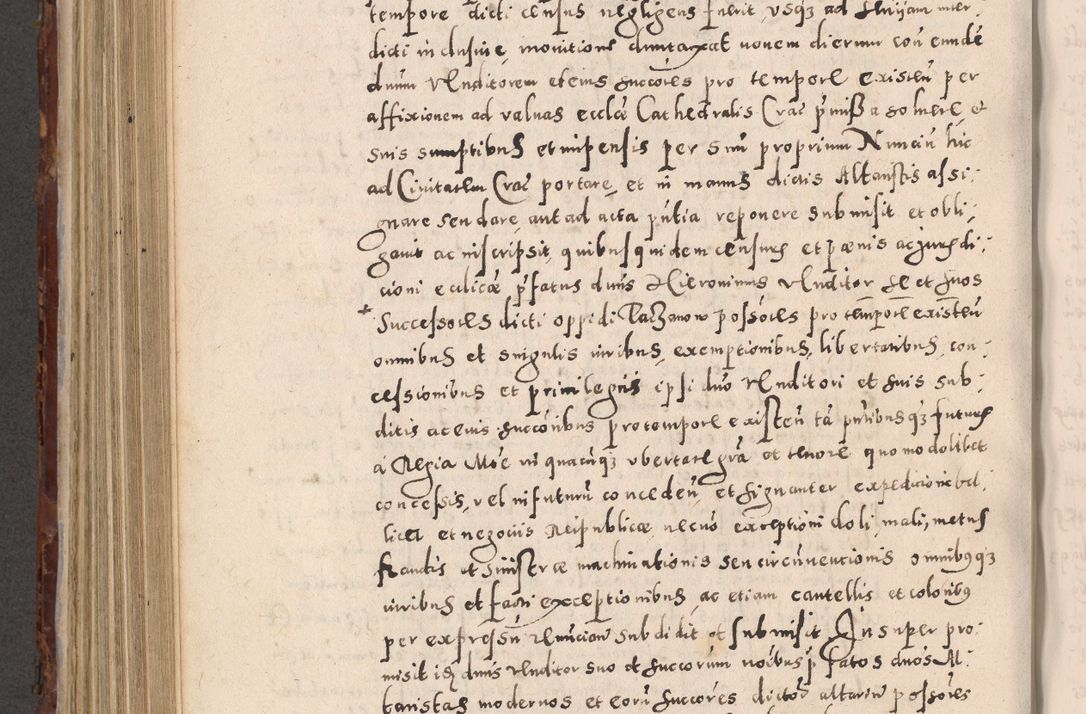 tempore dicti census negligens fuerit, vsq3 ad
dicti inclusiue, monitione duntaxat nonem dierum con eundẽ
dnum Venditorem et eius succores pro tempore existeñ per
affixionem ad valuas ecclẽ Cathedralis Crac̃ pmissa soluere, et
suis sumptibus et impensis per suũ proprium Nunciũ hic
ad Ciuitatem Crac̃ portare, et in manus dictis Altaristis assi:
gnare seu dare, aut ad acta pñtia reponere submisit et obli:
gauit ac inscripsit, quibus quidem censuris et pænis ac jurisdi:
cioni ecclicæ pfatus dnus Hieronimus Venditor se et suos
Successores dicti oppidi possores pro tempore existeñ
omnibus et singulis iuribus, exemptionibus, libertatibus, con:
cessionibus et priuilegiis ipsi dno Venditori et suis sub:
ditis ac eius succoribus pro tempore existeñ tã pñtibus q3 futuris
à Regia Mte in quacunq3 vbertate grã et tenore quomodolibet
concessis, vel in futurũ concedeñ, et signanter expedicione bel:
lica et negociis Reipublicæ necnõ exceptioni doli, mali, metus
fraudis et sinistræ machinationis seu circũuentionis omnibus q3
iuribus et facti exceptionibus, ac etiam cautellis et coloribus
per expressũ renuncians subdidit et submisit. Insuper pro:
misit idem dnus Venditor suo et succorum noibus pfatos dnos Al:
taristas modernos et eorũ succores dictorũ altarium possores